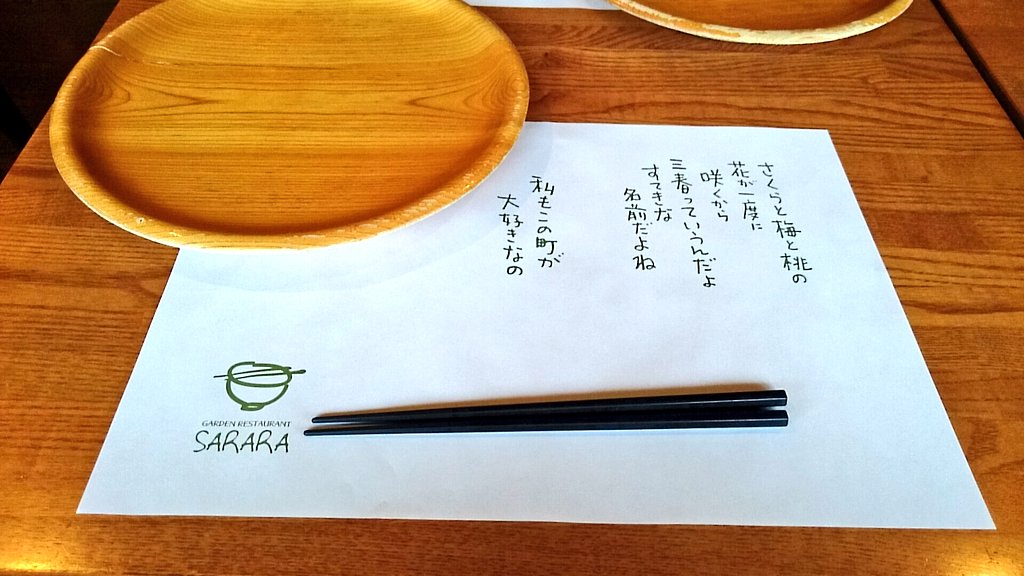 さくらと梅と桃の
花が一度に
咲くから
三春っていうんだよ
すてきな
名前だよね
私もこの町が
大好きなの
GARDEN RESTAURANT
SARARA